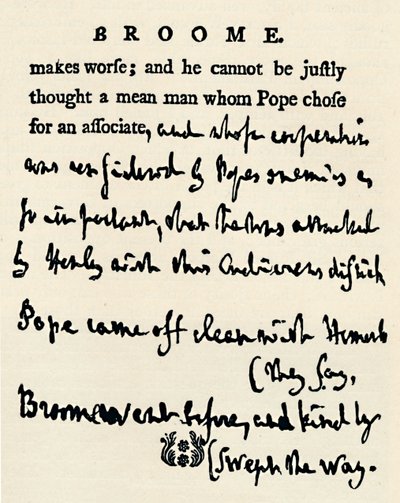 BROOME.
makes worſe; and he cannot be juſtly
thought a mean man whom Pope choſe
for an aſſociate, and whose cooperation
was considered by Popes enemies as
so important, that he was attacked
by Henley with this Ludicrous distich
Pope came off clean with Homer but
(they say,
Broome went before, and kindly
(swept the way.